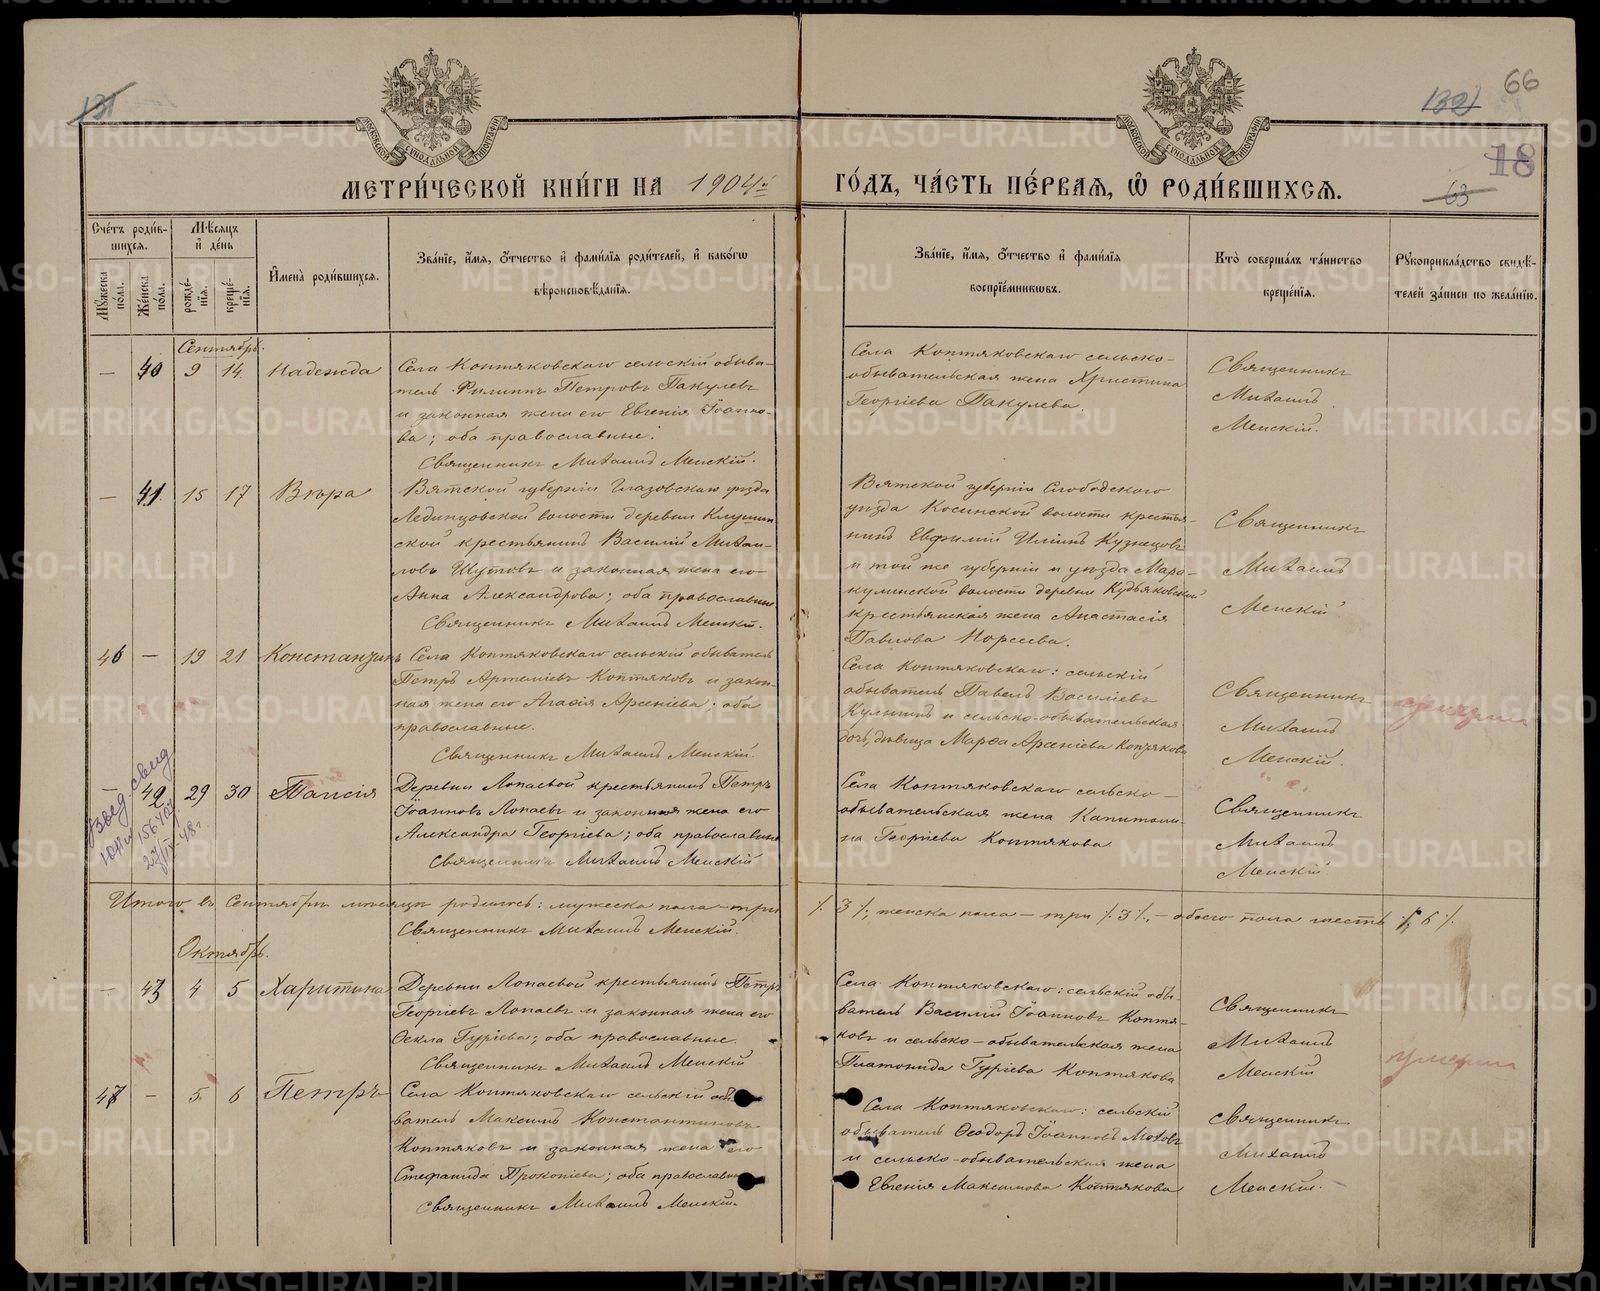 131
132
66
18
63
МОСКОВСКОЙ СѴНОДАЛЬНОЙ ТИПОГРАФІИ
МОСКОВСКОЙ СѴНОДАЛЬНОЙ ТИПОГРАФІИ
МЕТРИ́ЧЕСКОЙ КНИ́ГИ НА 1904й ГО́ДЪ, ЧА́СТЬ ПЕ́РВАѦ, Ѡ҆ РОДИ́ВШИХСѦ.
Сче́тъ роди́в-
шихсѧ.
Мꙋжеска по́ла.
Же́нска по́ла.
Мѣ́сѧцъ
и҆ де́нь
рожде́-
нїѧ.
креще́-
нїѧ.
И҆мена̀ роди́вшихсѧ.
Зва́нїе, и҆́мѧ, ѻ҆́тчество и҆ фами́лїѧ роди́телей, и҆ како́гѡ
вѣроисповѣ́данїѧ.
Зва́нїе, и҆́мѧ, ѻ҆́тчество и҆ фами́лїѧ
воспрїе́мникѡвъ.
Кто̀ соверша́лъ та́инство
креще́нїѧ.
Рꙋкоприкла́дство свидѣ́-
телей за́писи по жела́нїю.
Сентябрь.
— 40 9 14 Надежда
Села Коптяковскаго сельскій обыва-
тель Филиппъ Петровъ Пакулевъ
и законная жена его Евгенія Іоанно-
ва; оба православные.
Священникъ Михаилъ Менскій.
Села Коптяковскаго сельско-
обывательская жена Христина
Георгіева Пакулева.
Священникъ
Михаилъ
Менскій.
— 41 15 17 Вѣра
Вятской губерніи Глазовскаго уѣзда
Лединцовской волости деревни Клушин
ской крестьянинъ Василій Михаи-
ловъ Шутовъ и законная жена его
Анна Александрова; оба православные
Священникъ Михаилъ Менскій.
Вятской губерніи Слободского
уѣзда Косинской волости крестья-
нинъ Евфимій Ильинъ Кузнецовъ
и той же губерніи и уѣзда Мара-
кулинской волости деревни Кудьяковской
крестьянская жена Анастасія
Павлова Норсеева.
Священникъ
Михаилъ
Менскій
46 — 19 21 Константинъ
Села Коптяковскаго сельскій обыватель
Петръ Артеміевъ Коптяковъ и закон-
ная жена его Агафія Арсеніева; оба
православные.
Священникъ Михаилъ Менскій.
Села Коптяковскаго: сельскій
обыватель Павелъ Василіевъ
Кульшинъ и сельско-обывательская
дочь, дѣвица Марѳа Арсеніева Коптякова
Священникъ
Михаилъ
Менскій.
— 42 29 30 Таисія
Деревни Лопаевой крестьянинъ Петръ
Іоанновъ Лопаевъ и законная жена его
Александра Георгіева; оба православные
Священникъ Михаилъ Менскій
Села Коптяковскаго сельско-
обывательская жена Капитоли-
на Георгіева Коптякова
Священникъ
Михаилъ
Менскій
Итого въ Сентябрѣ мѣсяцѣ родилось: мужеска пола — три ⁒ 3 ⁒, женска пола — три ⁒ 3 ⁒, — обоего пола шесть ⁒ 6 ⁒.
Священникъ Михаилъ Менскій.
Октябрь.
— 43 4 5 Харитина
Деревни Лопаевой крестьянинъ Петръ
Георгіевъ Лопаевъ и законная жена его
Ѳекла Гуріева; оба православные.
Священникъ Михаилъ Менскій
Села Коптяковскаго: сельскій обы-
ватель Василій Іоанновъ Коптя-
ковъ и сельско-обывательская жена
Платонида Гуріева Коптякова
Священникъ
Михаилъ
Менскій
умерши
47 — 5 6 Петръ
Села Коптяковскаго сельскій обы
ватель Максимъ Константиновъ
Коптяковъ и законная жена его
Стефанида Прокопіева; оба православные
Священникъ Михаилъ Менскій.
Села Коптяковскаго: сельскій
обыватель Ѳеодоръ Іоанновъ Моховъ
и сельско-обывательская жена
Евгенія Максимова Коптякова
Священникъ
Михаилъ
Менскій.
METRIKI.GASO-URAL.RU